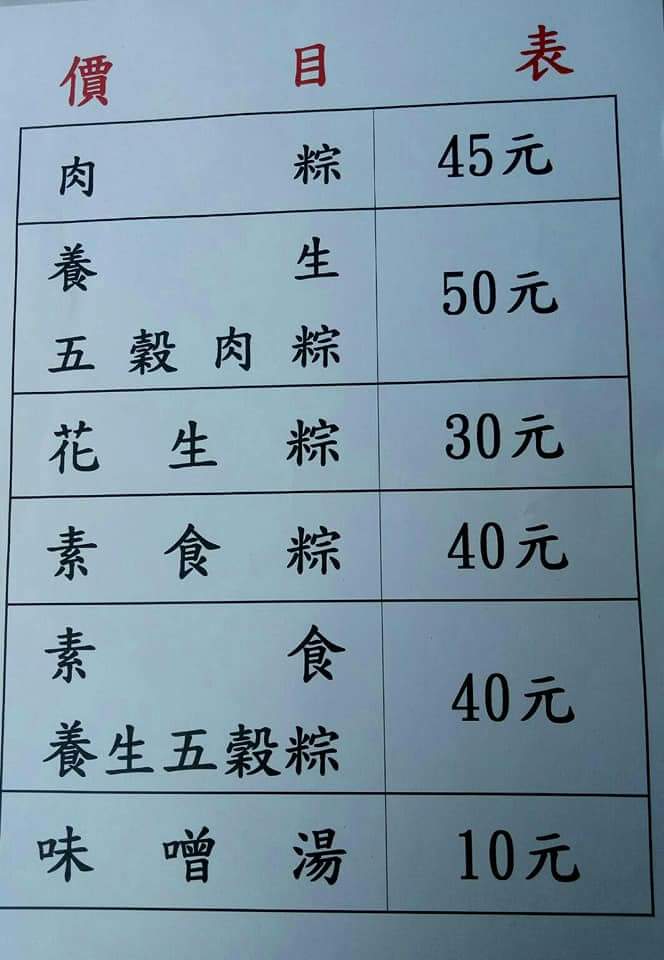 價目表
肉粽 45元
養生
五穀肉粽 50元
花生粽 30元
素食粽 40元
素食
養生五穀粽 40元
味噌湯 10元